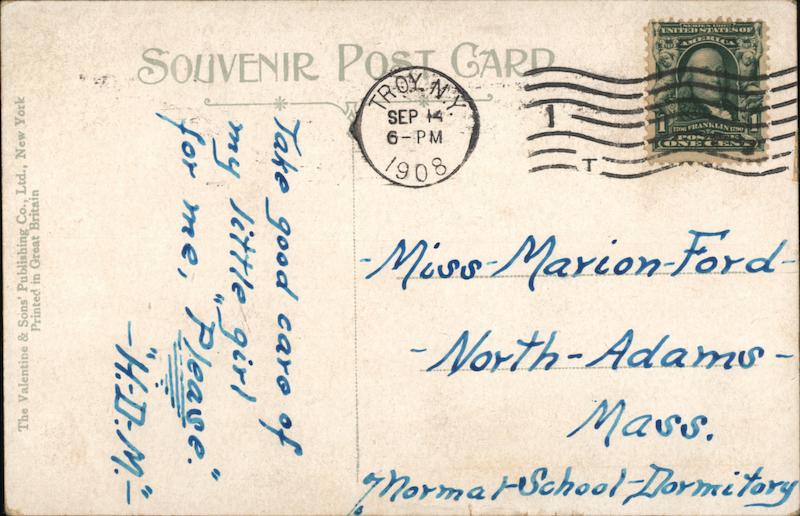 SOUVENIR POST CARD
TROY, N.Y.
SEP 14
6-PM
1908
1
T
SERIES 1902
UNITED STATES OF
AMERICA
1 1
1706 FRANKLIN 1790
POSTAGE
ONE CENT
Take good care of
my little girl
for me, "Please."
-"H.D.M."-
-Miss-Marion-Ford-
-North-Adams-
Mass.
Normal-School-Dormitory
The Valentine & Sons' Publishing Co., Ltd., New York
Printed in Great Britain